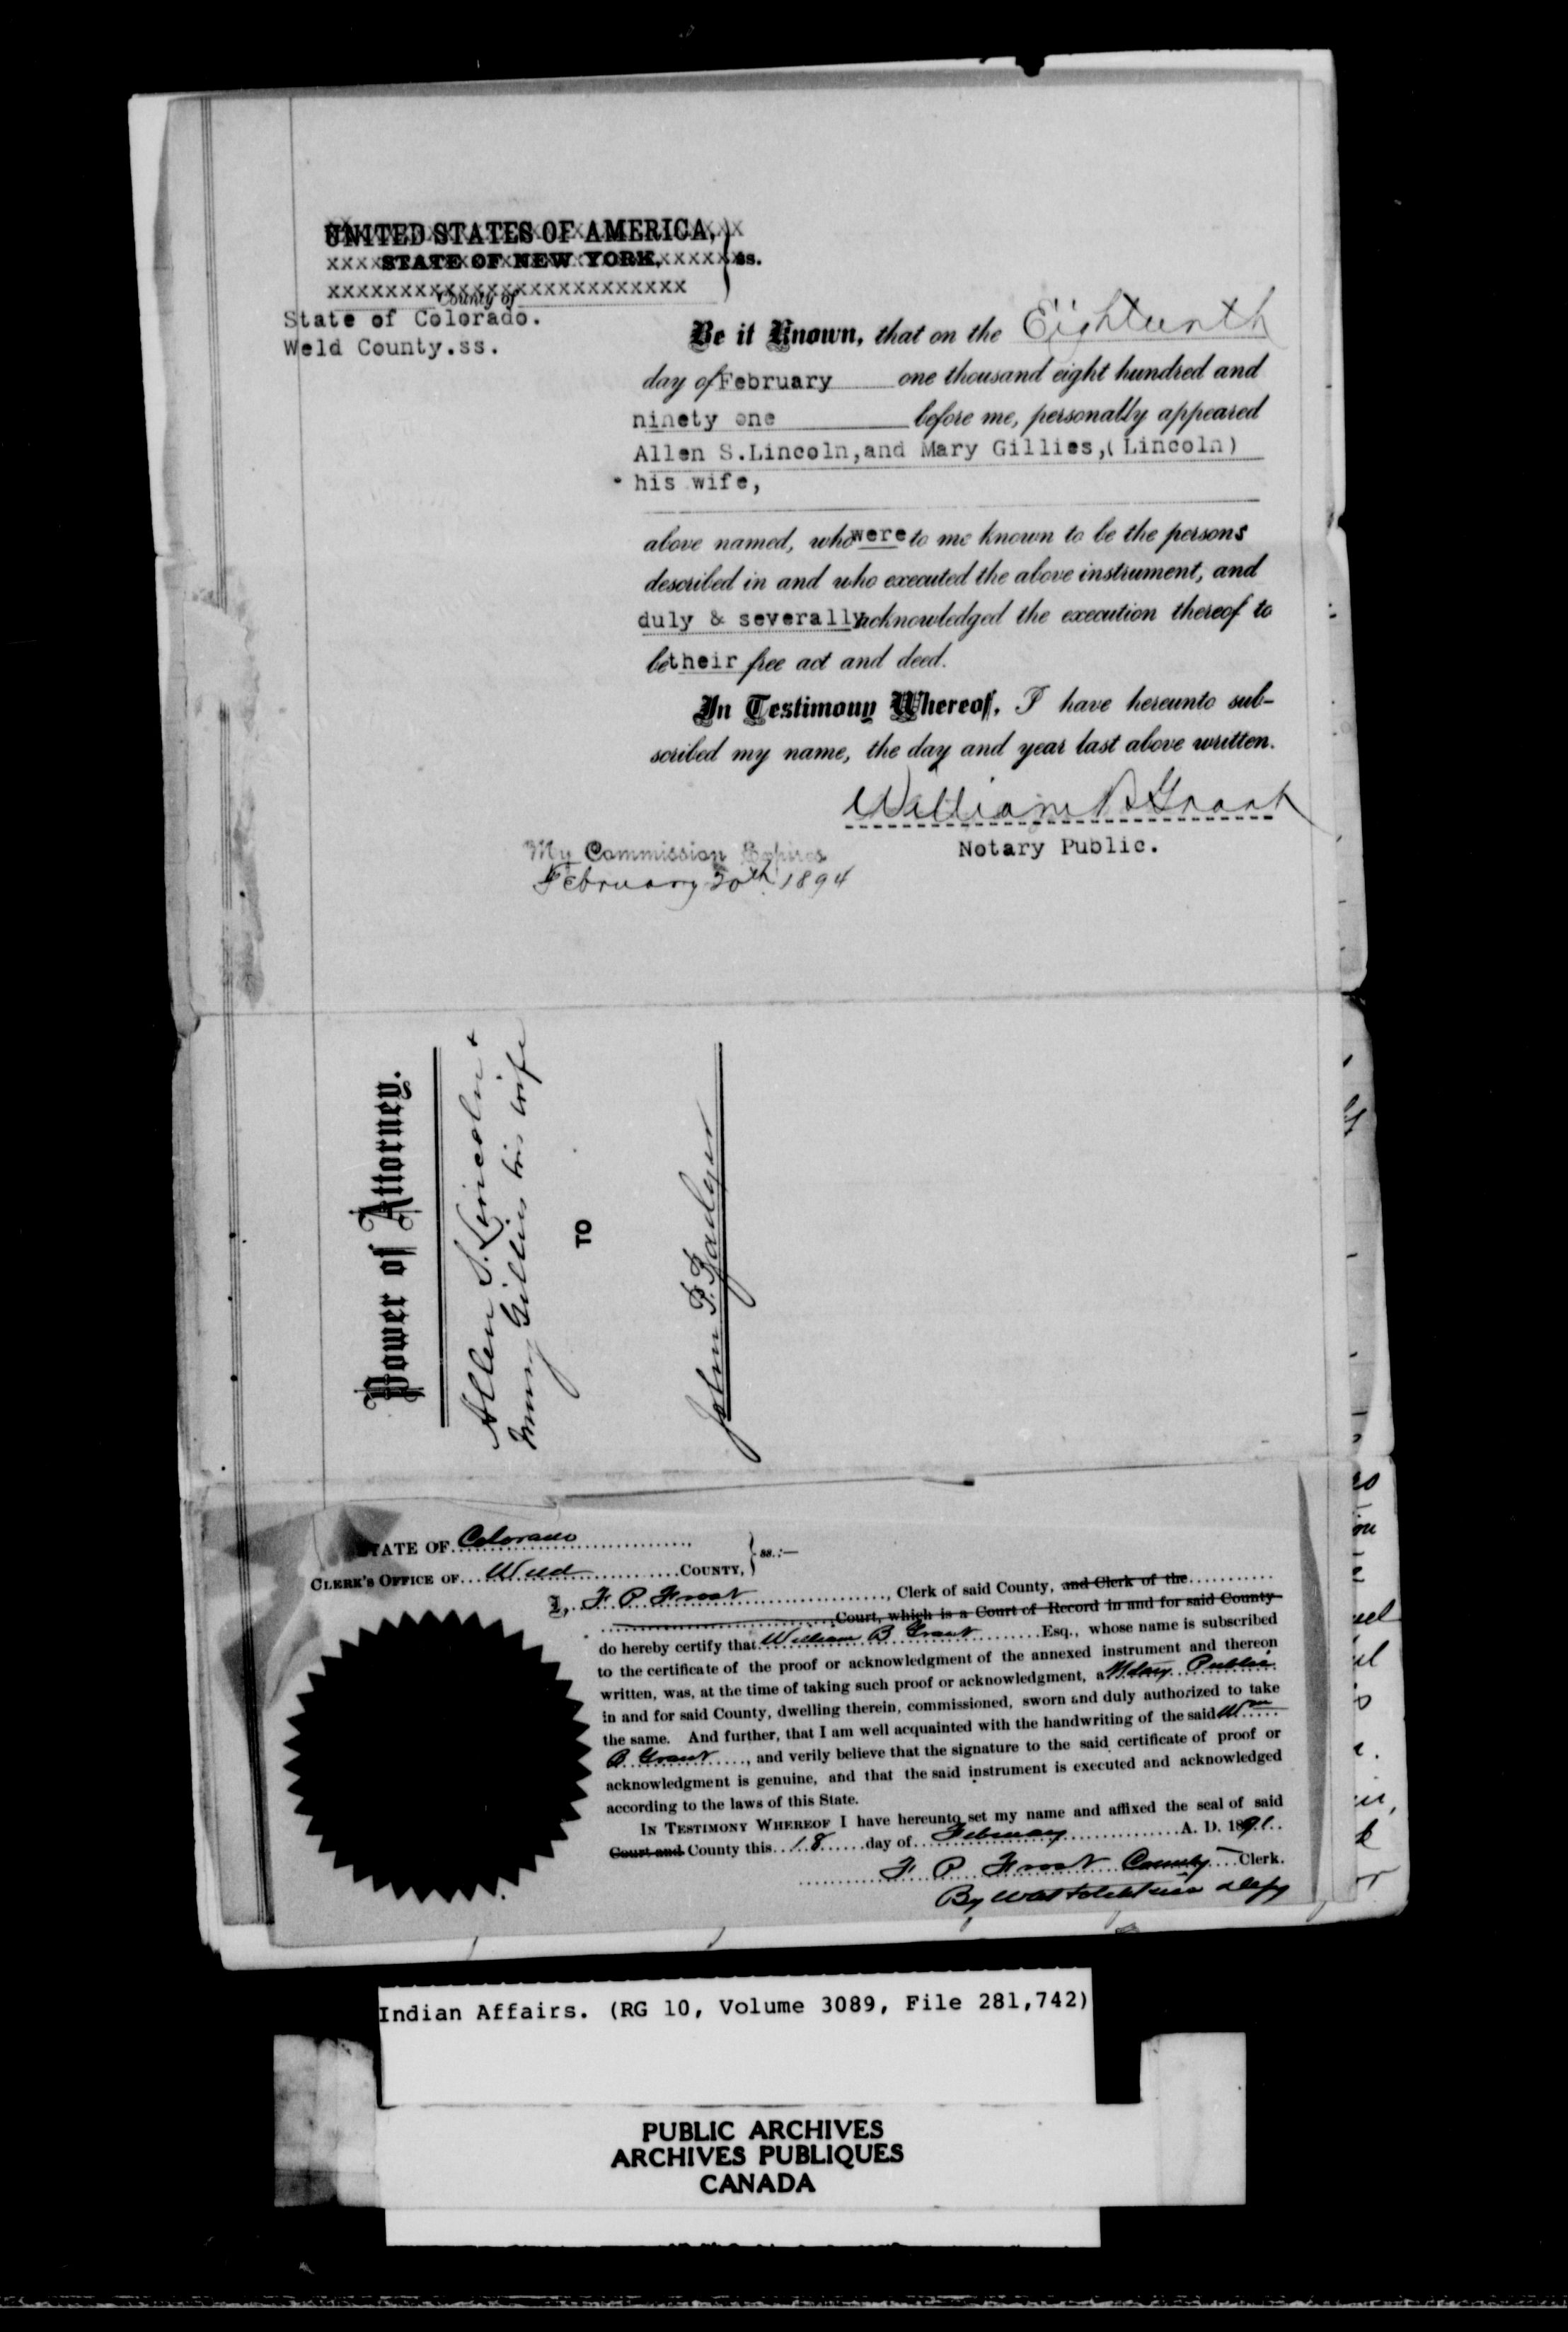 UNITED STATES OF AMERICA,
STATE OF NEW YORK, ss.
County of
State of Colorado.
Weld County.ss.
Be it Known, that on the Eighteenth
day of February one thousand eight hundred and
ninety one before me, personally appeared
Allen S.Lincoln,and Mary Gillies,(Lincoln)
his wife,
above named, who were to me known to be the persons
described in and who executed the above instrument, and
duly & severally acknowledged the execution thereof to
be their free act and deed.
In Testimony Whereof, I have hereunto sub-
scribed my name, the day and year last above written.
William B Grant
Notary Public.
My Commission Expires
February 20th 1894
Power of Attorney.
Allen S. Lincoln &
Mary Gillies his wife
TO
John P. Badger
STATE OF Colorado
CLERK'S OFFICE OF Weld COUNTY, ss.:—
I, F P Frost, Clerk of said County, and Clerk of the
Court, which is a Court of Record in and for said County
do hereby certify that William B Grant Esq., whose name is subscribed
to the certificate of the proof or acknowledgment of the annexed instrument and thereon
written, was, at the time of taking such proof or acknowledgment, a Notary Public
in and for said County, dwelling therein, commissioned, sworn and duly authorized to take
the same. And further, that I am well acquainted with the handwriting of the said Wm
B Grant, and verily believe that the signature to the said certificate of proof or
acknowledgment is genuine, and that the said instrument is executed and acknowledged
according to the laws of this State.
IN TESTIMONY WHEREOF I have hereunto set my name and affixed the seal of said
Court and County this 18 day of February A. D. 1891.
F P Frost County Clerk.
By
Indian Affairs. (RG 10, Volume 3089, File 281,742)
PUBLIC ARCHIVES
ARCHIVES PUBLIQUES
CANADA